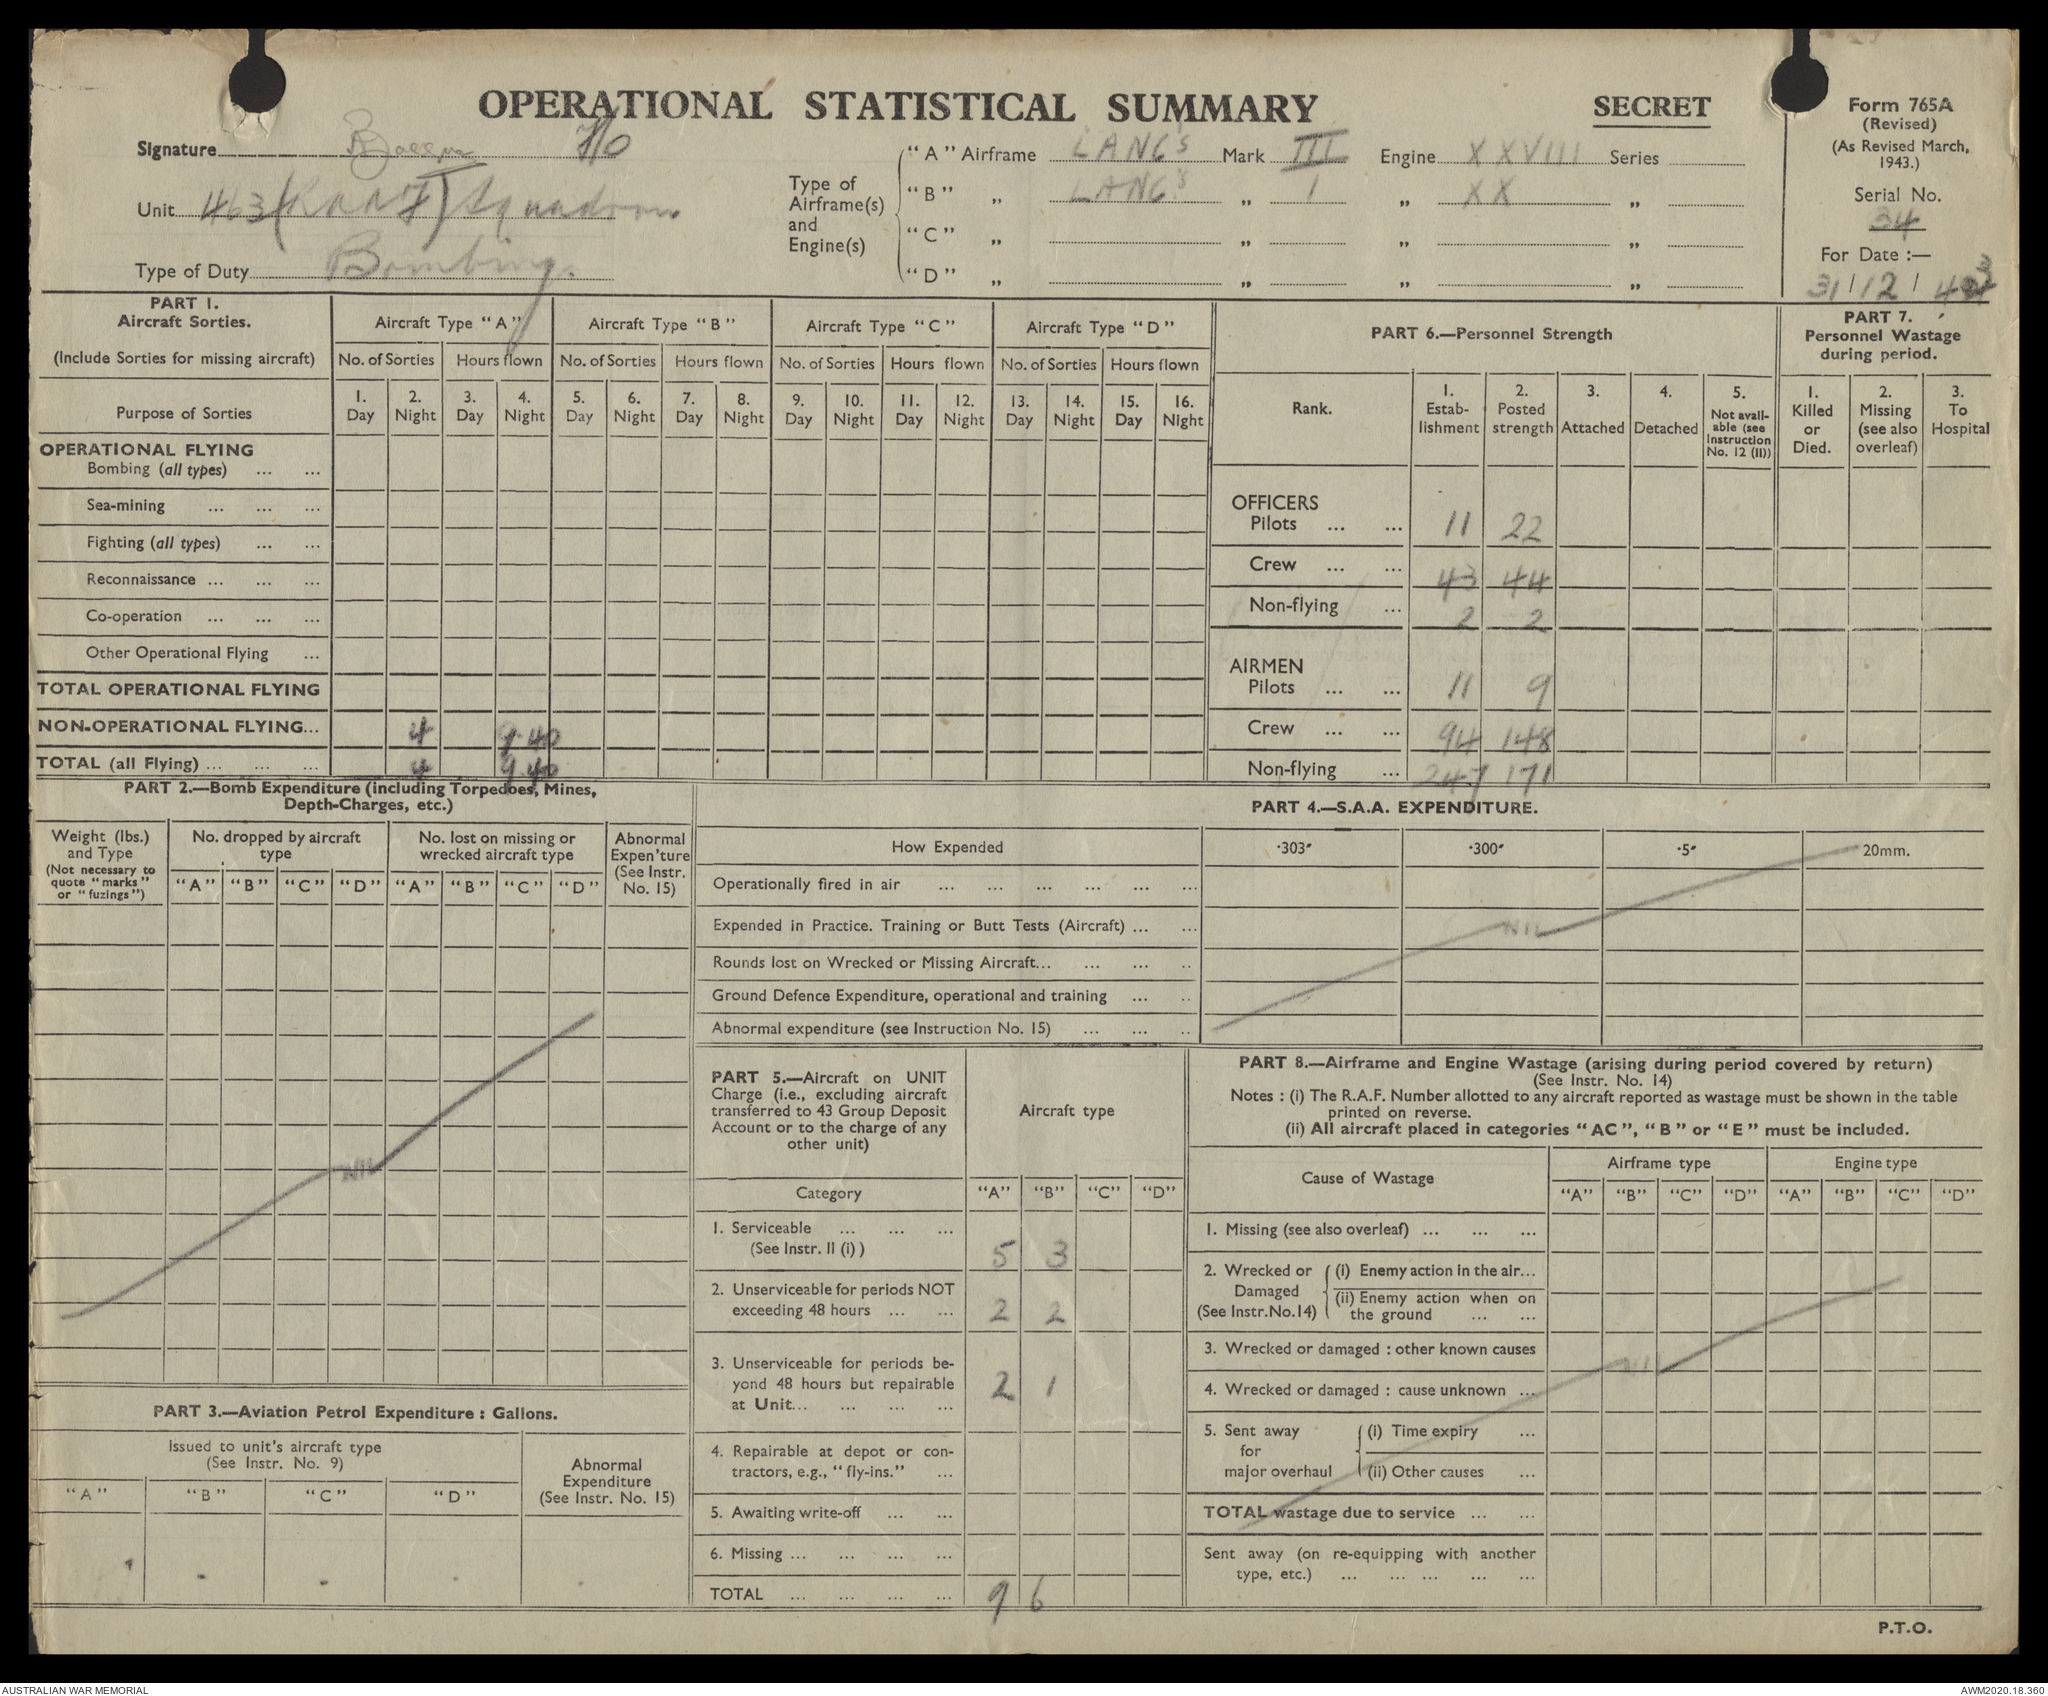 OPERATIONAL STATISTICAL SUMMARY
SECRET
Form 765A
(Revised)
(As Revised March,
1943.)
Serial No.
34
For Date :—
31/12/43
Signature F/O
Unit 463 (RAAF) Squadron
Type of Duty Bombing.
Type of
Airframe(s)
and
Engine(s)
"A" Airframe LANC's Mark III Engine XXVIII Series
"B" „ LANC's „ 1 „ XX „
"C" „ „ „ „
"D" „ „ „ „
PART 1.
Aircraft Sorties.
(Include Sorties for missing aircraft)
Purpose of Sorties
Aircraft Type "A" Aircraft Type "B" Aircraft Type "C" Aircraft Type "D"
No. of Sorties Hours flown No. of Sorties Hours flown No. of Sorties Hours flown No. of Sorties Hours flown
1. 2. 3. 4. 5. 6. 7. 8. 9. 10. 11. 12. 13. 14. 15. 16.
Day Night Day Night Day Night Day Night Day Night Day Night Day Night Day Night
OPERATIONAL FLYING
Bombing (all types) ... ...
Sea-mining ... ... ...
Fighting (all types) ... ...
Reconnaissance ... ... ...
Co-operation ... ... ...
Other Operational Flying ...
TOTAL OPERATIONAL FLYING
NON-OPERATIONAL FLYING... 4 9.40
TOTAL (all Flying) ... ... ... 4 9.40
PART 6.—Personnel Strength
Rank.
1. Estab-lishment
2. Posted strength
3. Attached
4. Detached
5. Not avail-able (see Instruction No. 12 (II))
OFFICERS
Pilots ... ... 11 22
Crew ... ... 43 44
Non-flying ... 2 2
AIRMEN
Pilots ... ... 11 9
Crew ... ... 94 148
Non-flying ... 247 171
PART 7.
Personnel Wastage
during period.
1. Killed or Died.
2. Missing (see also overleaf)
3. To Hospital
PART 2.—Bomb Expenditure (including Torpedoes, Mines,
Depth-Charges, etc.)
Weight (lbs.)
and Type
(Not necessary to
quote "marks"
or "fuzings")
No. dropped by aircraft
type
No. lost on missing or
wrecked aircraft type
Abnormal
Expen'ture
(See Instr.
No. 15)
"A" "B" "C" "D" "A" "B" "C" "D"
NIL
PART 3.—Aviation Petrol Expenditure : Gallons.
Issued to unit's aircraft type
(See Instr. No. 9)
"A" "B" "C" "D"
Abnormal
Expenditure
(See Instr. No. 15)
PART 4.—S.A.A. EXPENDITURE.
How Expended ·303" ·300" ·5" 20mm.
Operationally fired in air ... ... ... ... ... ...
Expended in Practice. Training or Butt Tests (Aircraft) ... ...
Rounds lost on Wrecked or Missing Aircraft... ... ... ..
Ground Defence Expenditure, operational and training ... ..
Abnormal expenditure (see Instruction No. 15) ... ... ..
NIL
PART 5.—Aircraft on UNIT
Charge (i.e., excluding aircraft
transferred to 43 Group Deposit
Account or to the charge of any
other unit)
Aircraft type
Category "A" "B" "C" "D"
1. Serviceable ... ... ...
(See Instr. II (i) ) 5 3
2. Unserviceable for periods NOT
exceeding 48 hours ... ... 2 2
3. Unserviceable for periods be-
yond 48 hours but repairable
at Unit... ... ... ... 2 1
4. Repairable at depot or con-
tractors, e.g., "fly-ins." ...
5. Awaiting write-off ... ...
6. Missing ... ... ... ...
TOTAL ... ... ... ... 9 6
PART 8.—Airframe and Engine Wastage (arising during period covered by return)
(See Instr. No. 14)
Notes : (i) The R.A.F. Number allotted to any aircraft reported as wastage must be shown in the table
printed on reverse.
(ii) All aircraft placed in categories "AC", "B" or "E" must be included.
Cause of Wastage
Airframe type Engine type
"A" "B" "C" "D" "A" "B" "C" "D"
1. Missing (see also overleaf) ... ... ...
2. Wrecked or
Damaged
(See Instr.No.14)
(i) Enemy action in the air...
(ii) Enemy action when on
the ground ... ...
3. Wrecked or damaged : other known causes
4. Wrecked or damaged : cause unknown ...
NIL
5. Sent away
for
major overhaul
(i) Time expiry ...
(ii) Other causes ...
TOTAL wastage due to service ... ...
Sent away (on re-equipping with another
type, etc.) ... ... ... ... ...
P.T.O.
AUSTRALIAN WAR MEMORIAL
AWM2020.18.360